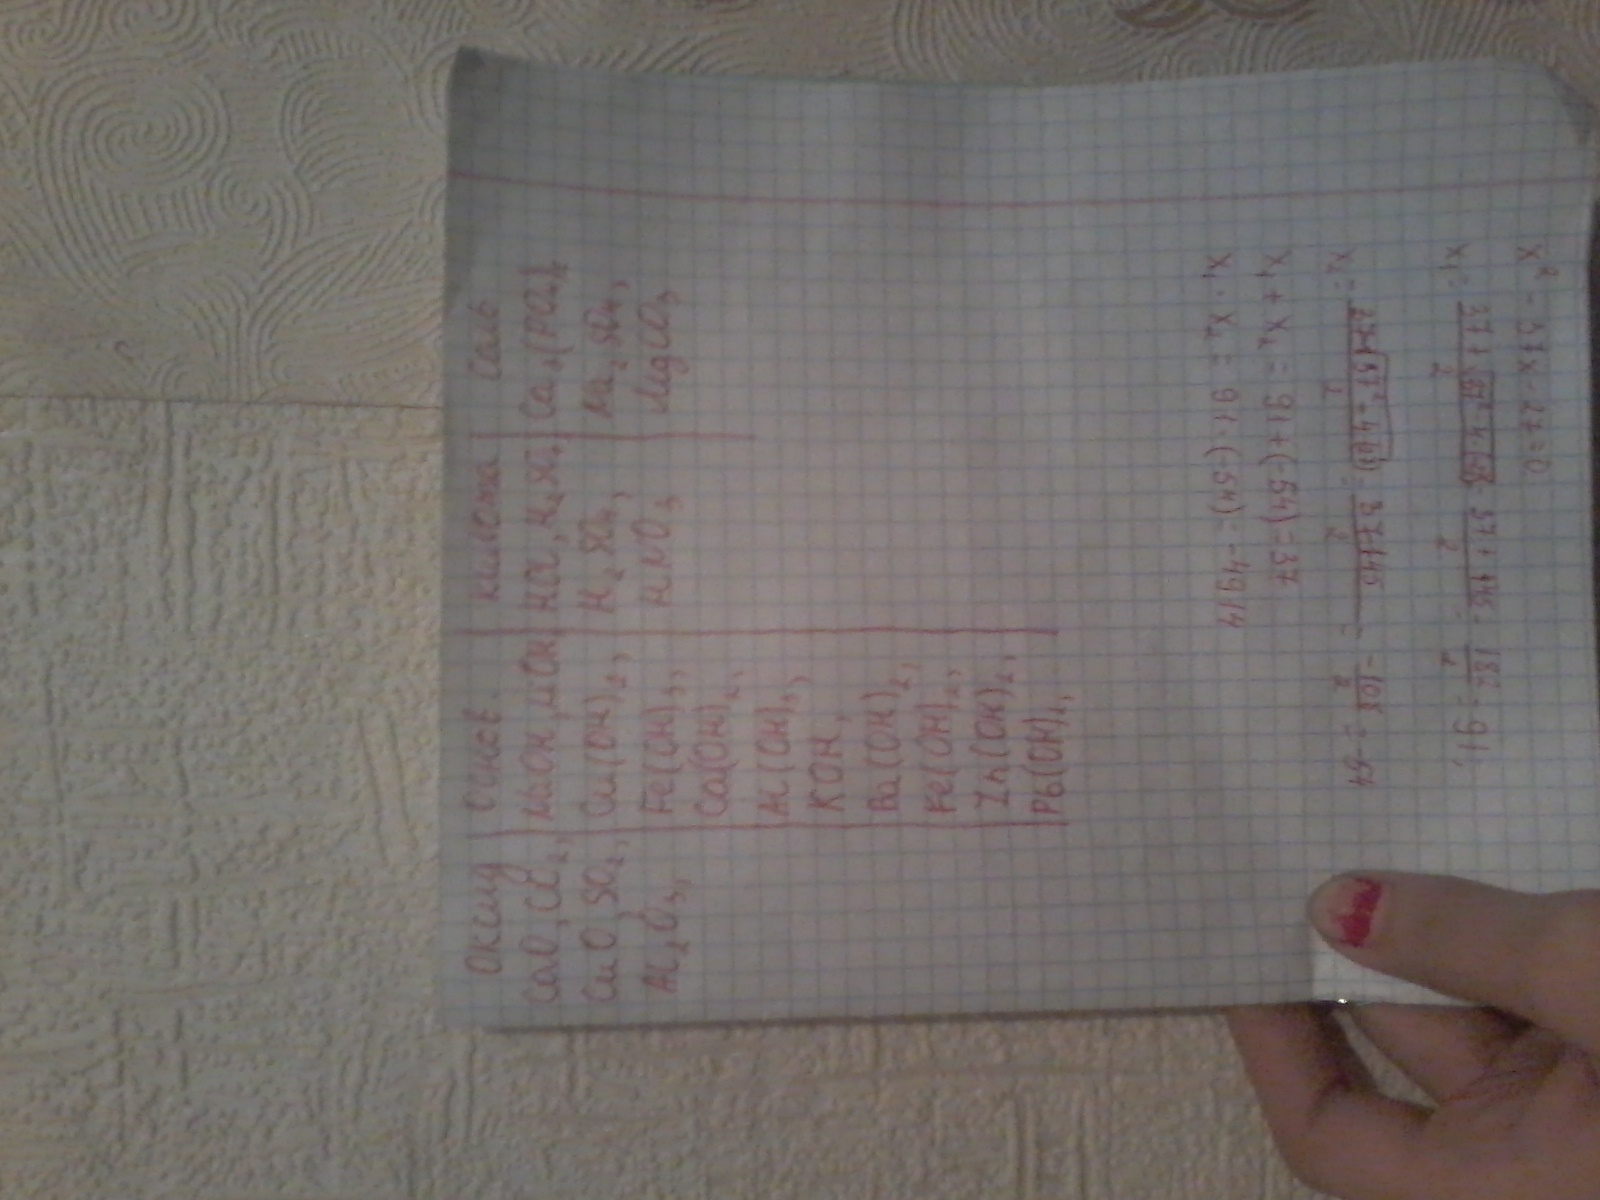 Оксид | Основ. | кислота | Соль
CaO, Cl₂, | NaOH, LiOH | HCl, H₂SO₃, | Ca₃(PO₄)₂
CuO, SO₂, | Cu(OH)₂, | H₂SO₄, | Na₂SO₄,
Al₂O₃, | Fe(OH)₃, | HNO₃ | MgCO₃
Ca(OH)₂,
Al(OH)₃,
KOH,
Ba(OH)₂,
Fe(OH)₂,
Zn(OH)₂,
Pb(OH)₂,
x² - 37x - 27 = 0
x₁ = = 182/2 = 91,
x₂ = = 37-145/2 = -108/2 = -54
x₁ + x₂ = 91 + (-54) = 37
x₁ · x₂ = 91 · (-54) = -4914